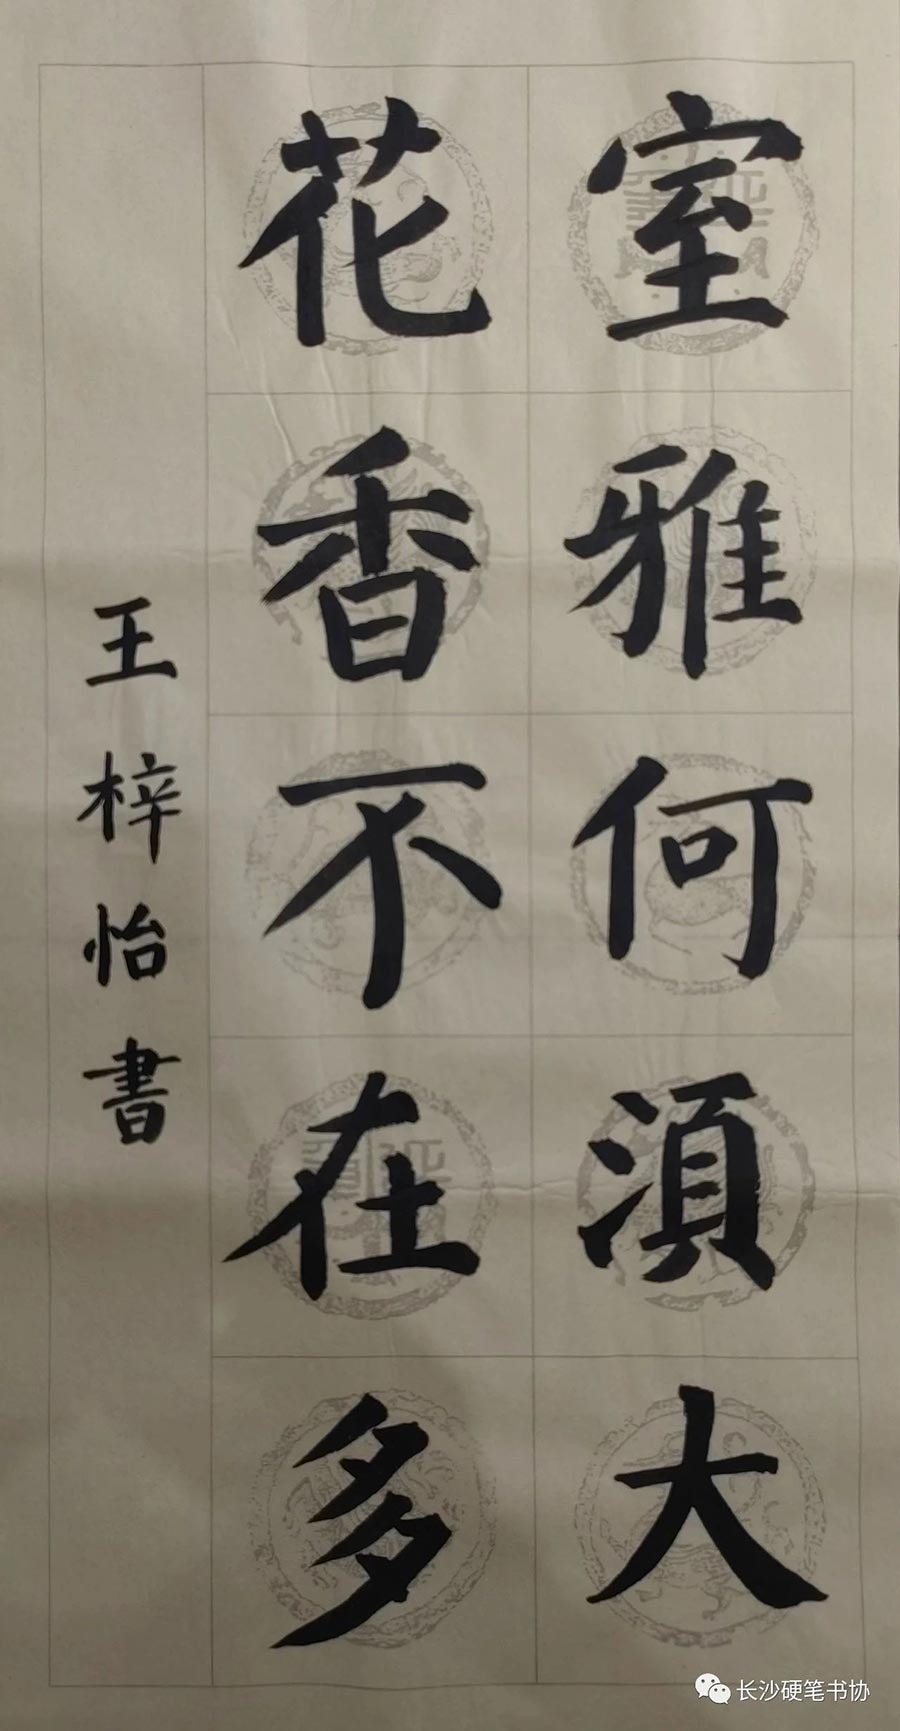 室雅何湏大
花香不在多
王梓怡書
长沙硬笔书协